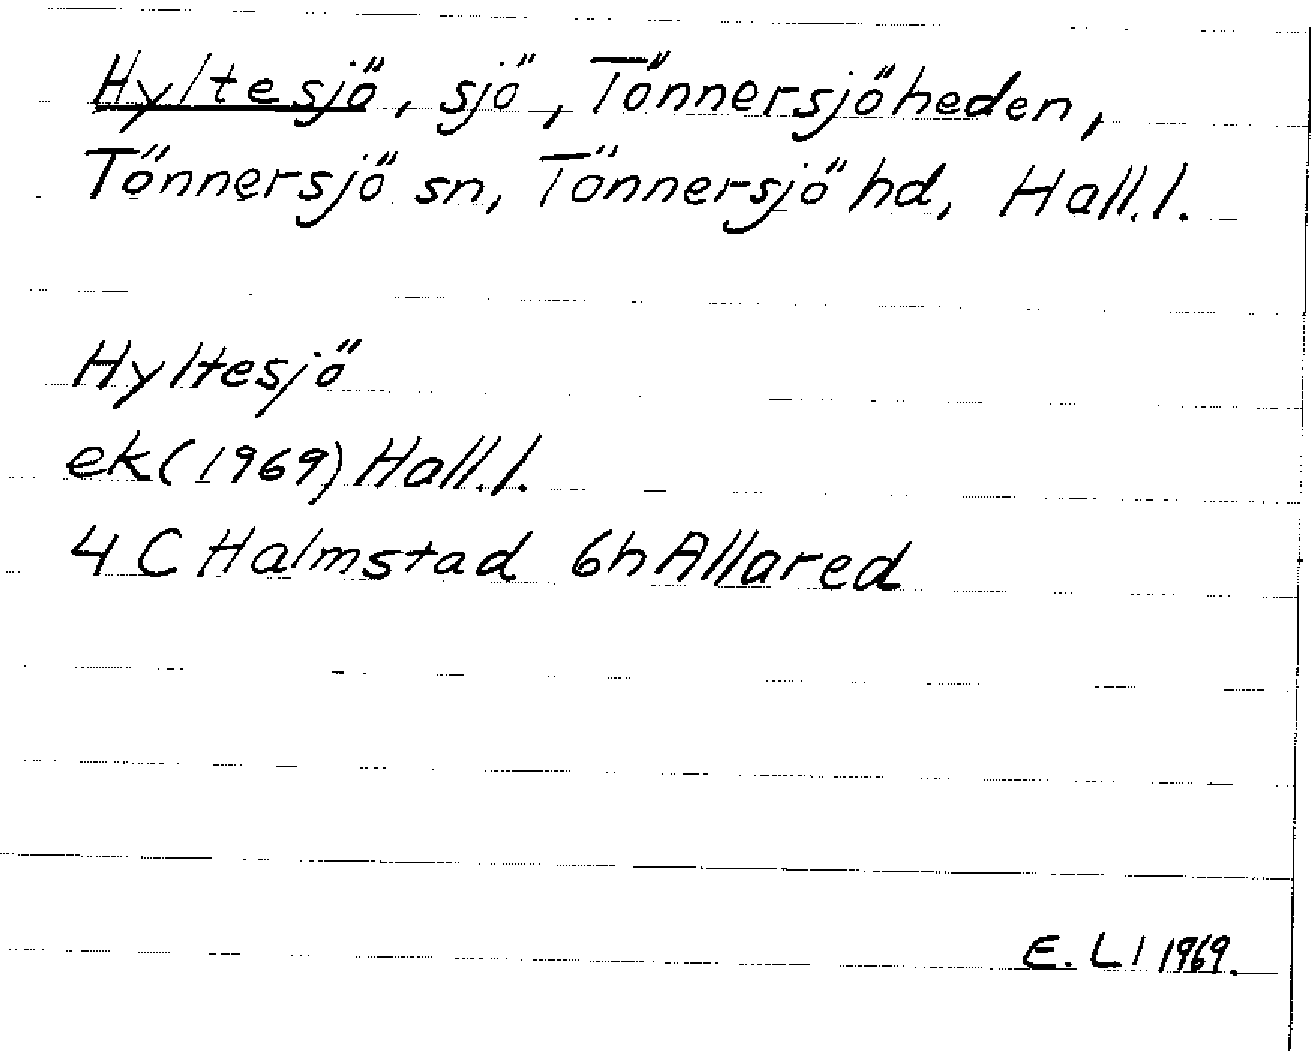 Hyltesjö, sjö, Tönnersjöheden,
Tönnersjö sn, Tönnersjö hd, Hall.l.
Hyltesjö
ek (1969) Hall.l.
4 C Halmstad 6h Allared
E. Ll 1969.